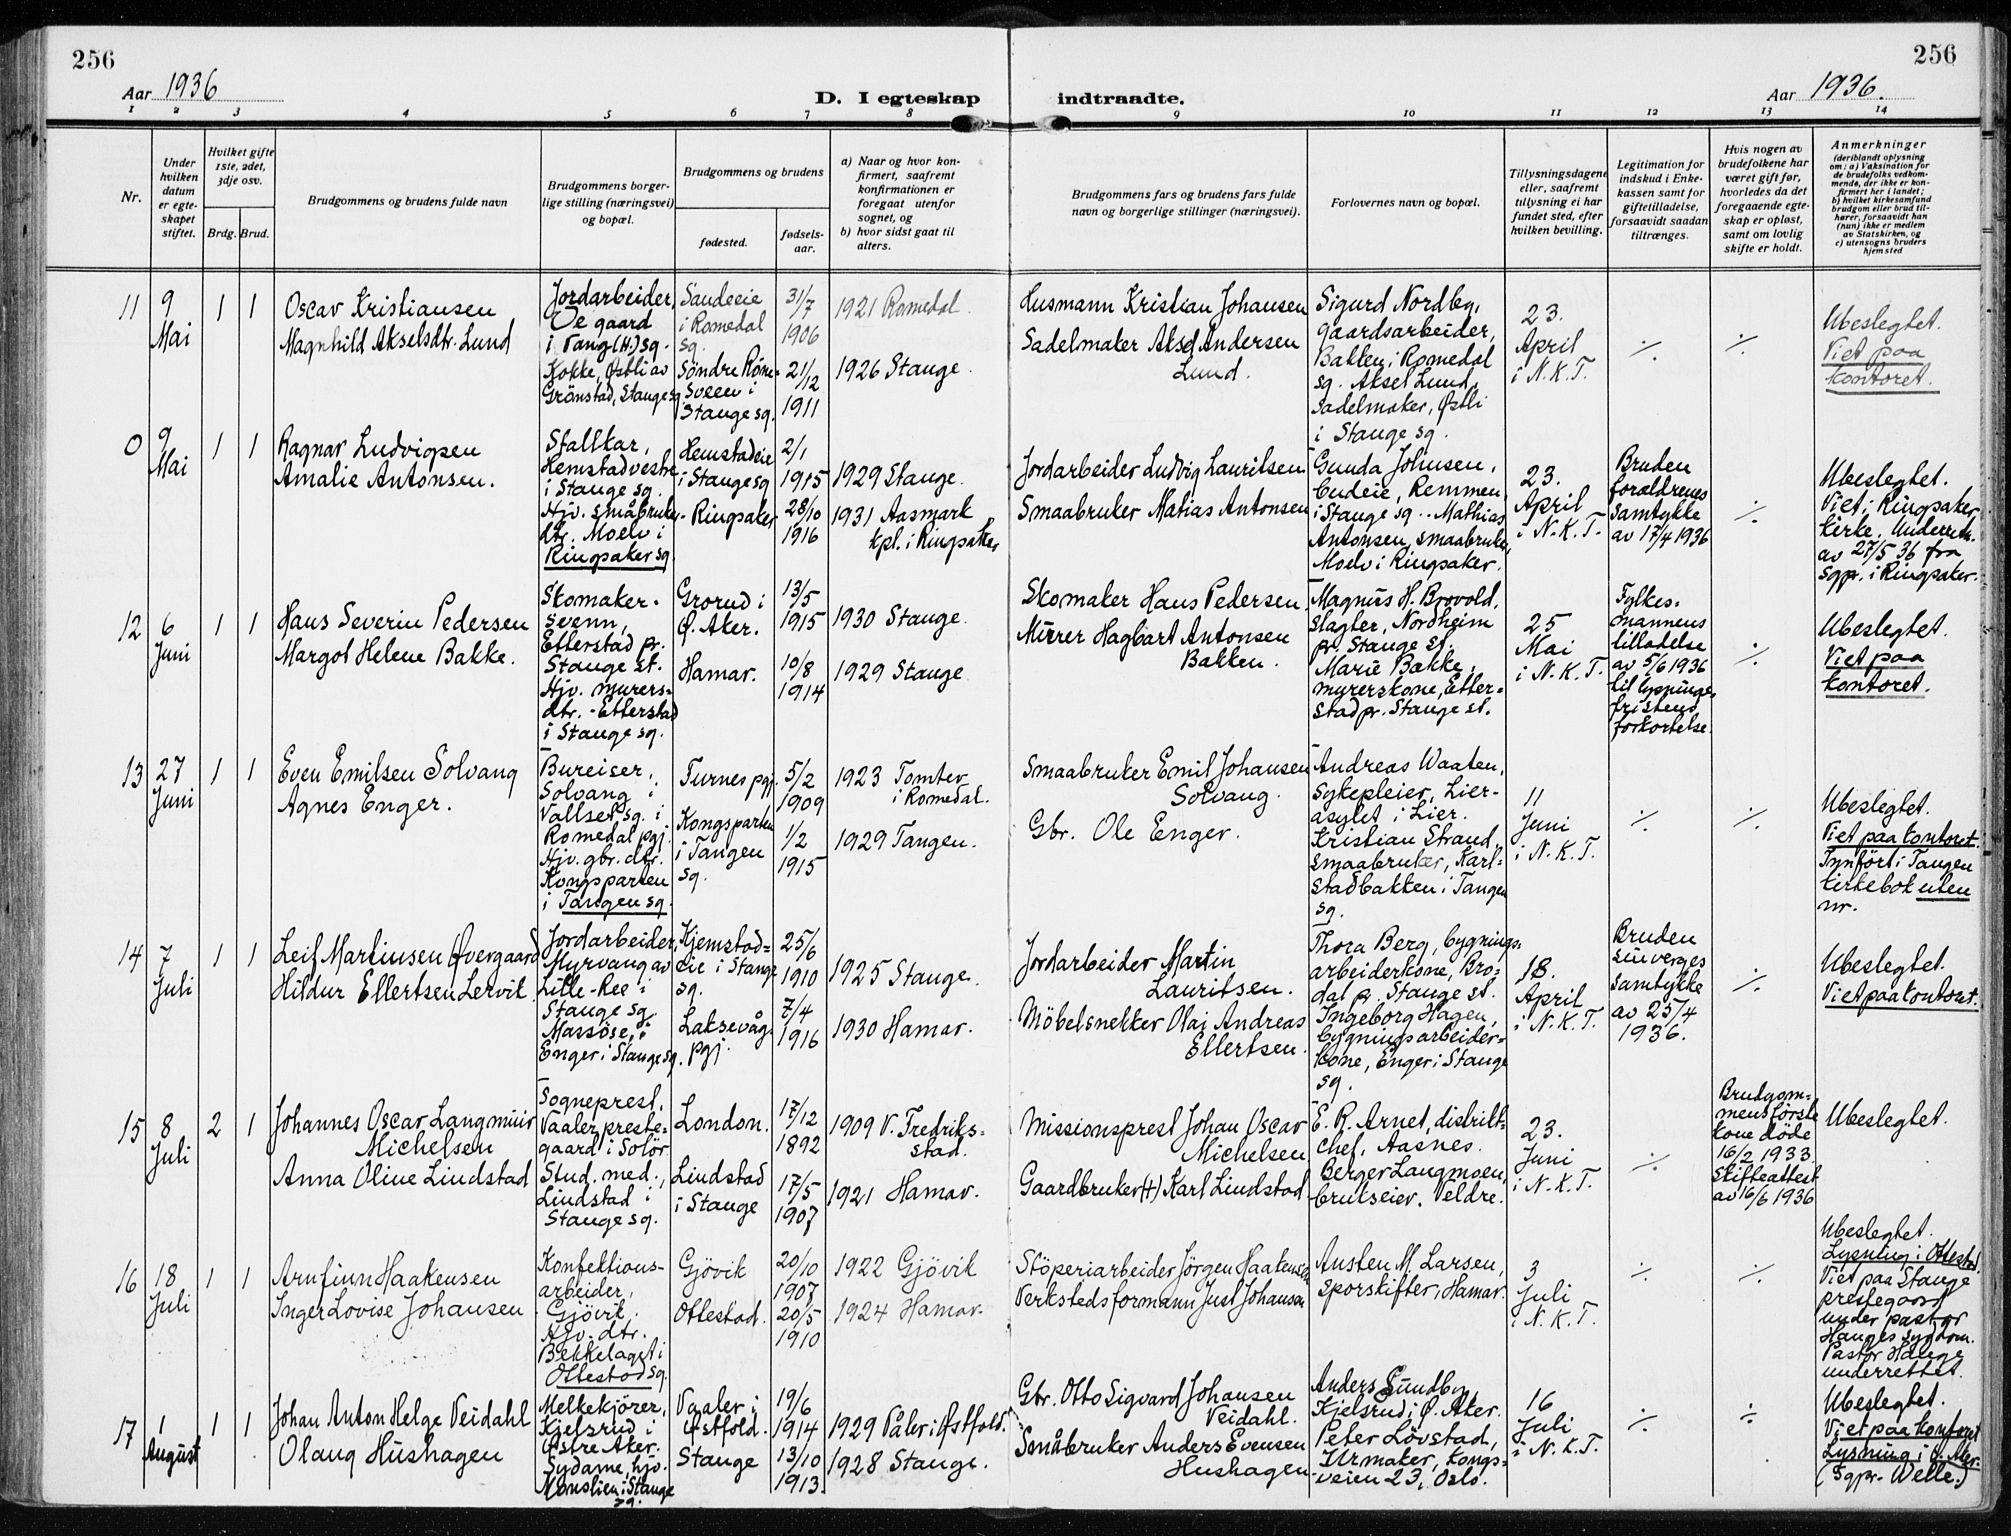 256
256
Aar 1936
D. I egteskap indtraadte.
Aar 1936.
1 2 3 4 5 6 7 8 9 10 11 12 13 14
Nr.
Under hvilken datum er egteskapet stiftet.
Hvilket gifte 1ste, 2det, 3dje osv.
Brdg. Brud.
Brudgommens og brudens fulde navn
Brudgommens borgerlige stilling (næringsvei) og bopæl.
Brudgommens og brudens
fødested.
fødselsaar.
a) Naar og hvor konfirmert, saafremt konfirmationen er foregaat utenfor sognet, og
b) hvor sidst gaat til alters.
Brudgommens fars og brudens fars fulde navn og borgerlige stillinger (næringsvei).
Forlovernes navn og bopæl.
Tillysningsdagene eller, saafremt tillysning ei har fundet sted, efter hvilken bevilling.
Legitimation for indskud i Enkekassen samt for giftetilladelse, forsaavidt saadan tiltrænges.
Hvis nogen av brudefolkene har været gift før, hvorledes da det foregaaende egteskap er opløst, samt om lovlig skifte er holdt.
Anmerkninger
(deriblandt oplysning om: a) Vaksination for de brudefolks vedkommende, der ikke er konfirmert her i landet; b) hvilket kirkesamfund brudgom eller brud tilhører, forsaavidt han (hun) ikke er medlem av Statskirken, og c) utensogns bruders hjemsted
11
9 Mai
1 1
Oscar Kristiansen
Magnhild Akselsdtr. Lund
Jordarbeider,
Oegaard
i Vang (H.) sg.
Kokke, Østli av
Grönstad, Stange sg.
Sandeeie
i Romedal
sg.
Söndre Röne-
sveen i
Stange sg.
31/7
1906
21/12
1911
1921 Romedal.
1926 Stange.
Husmann Kristian Johansen
Sadelmaker Aksel Andersen
Lund.
Sigurd Nordbg,
gaardsarbeider,
Bakken i Romedal
sg. Aksel Lund,
sadelmaker, Østli
i Stange sg.
23.
April
i N.K.T.
./.
./.
Ubeslegtet.
Viet paa
kontoret.
0
9 Mai
1 1
Ragnar Ludvigsen
Amalie Antonsen.
Stallkar,
Hemstad vestre
i Stange sg.
Hjv. småbruker-
dtr. Moelv i
Ringsaker sg.
Hemstadeie
i Stange sg
Ringsaker
2/1
1915
28/10
1916
1929 Stange.
1931 Aasmark
kpl. i Ringsaker
Jordarbeider Ludvig Lauritsen
Smaabruker Matias Antonsen
Gunda Johnsen,
budeie, Remmen
i Stange sg. Mathias
Antonsen, smaabruker,
Moelv i Ringsaker.
23.
April
i N.K.T.
Bruden
forældrenes
samtykke
av 17/4 1936
./.
Ubeslegtet.
Viet i Ringsaker
kirke. Underretn.
av 27/5 36 fra
sgpr. i Ringsaker.
12
6 Juni
1 1
Hans Severin Pedersen
Margot Helene Bakke.
Skomaker-
svenn,
Etterstad pr.
Stange st.
Hjv. murers-
dtr. - Etterstad
i Stange sg.
Grorud i
Ø. Aker.
Hamar.
13/5
1915
10/8
1914
1930 Stange.
1929 Stange
Skomaker Hans Pedersen
Murer Hagbart Antonsen
Bakken.
Magnus H. Brovold,
slagter, Nordheim
pr. Stange st.
Marie Bakke,
murerskone, Etter-
stad pr. Stange st.
25
Mai
i N.K.T.
Fylkes-
mannens
tilladelse
av 5/6 1936
til lysnings-
fristens
forkortelse.
./.
Ubeslegtet.
Viet paa
kontoret.
13
27 Juni
1 1
Even Emilsen Solvang
Agnes Enger.
Bureiser,
Solvang i
Vallset sg. i
Romedal pgj.
Hjv. gbr. dtr.
Kongsparten
i Tangen sg.
Furnes pgj.
Kongsparten
i Tangen
sg.
5/2
1909
1/2
1915
1923 Tomter
i Romedal.
1929 Tangen.
Smaabruker Emil Johansen
Solvang.
Gbr. Ole Enger.
Andreas Waaten,
sykepleier, Lier-
asylet i Lier.
Kristian Strand,
smaabruker, Karl-
stadbakken i Tangen
sg.
11
Juni
i N.K.T.
./.
./.
Ubeslegtet.
Viet paa kontoret.
Innfört i Tangen
kirkebok uten
nr.
14
7 Juli
1 1
Leif Martinsen Øvergaard
Hildur Ellertsen Lervik.
Jordarbeider,
Myrvang av
Lille-Ree i
Stange sg.
Massöse,
Enger i Stange sg.
Kjemstad-
eie i Stange
sg.
Laksevåg
pgj.
25/6
1910
7/4
1916
1925 Stange.
1930 Hamar.
Jordarbeider Martin
Lauritsen.
Möbelsnekker Olaj Andreas
Ellertsen.
Thora Berg, bygnings-
arbeiderkone, Bro-
dal pr. Stange st.
Ingeborg Hagen,
bygningsarbeider-
kone, Enger i Stange
sg.
18.
April
i N.K.T.
Bruden
sin verges
samtykke
av 25/4
1936.
./.
Ubeslegtet.
Viet paa kontoret.
15
8 Juli
2 1
Johannes Oscar Langmuir
Michelsen
Anna Oline Lindstad
Sogneprest,
Vaaler preste-
gaard i Solör
Stud. med.,
Lindstad i
Stange sg.
London.
Lindstad
i Stange
17/12
1892
17/5
1907
1909 V. Fredrik-
stad.
1921 Hamar.
Missionsprest Johan Oscar
Michelsen
Gaardbruker (+) Karl Lindstad
E. R. Arnet, distrikt-
chef, Aasnes.
Berger Langmoen,
brukseier, Veldre.
23.
Juni
i N.K.T.
./.
Brudgom-
mens förste
kone döde
16/2 1933
Skifteattest
av 16/6 1936
Ubeslegtet.
16
18 Juli
1 1
Arnfinn Haakensen
Inger Lovise Johansen
Konfektions-
arbeider,
Gjövik.
Hjv. dtr.
Bekkelaget i
Ottestad sg.
Gjövik
Ottestad.
20/10
1907
20/5
1910
1922 Gjövik
1924 Hamar.
Stöperiarbeider Jörgen Haakensen
Verkstedsformann Just Johansen
Austen M. Larsen,
sporskifter, Hamar.
3
Juli
i N.K.T.
./.
./.
Ubeslegtet.
Lysning i Ottestad.
Viet paa Stange
prestegaard
under pastor
Hauges sygdom.
Pastor Hauge
underrettet.
17
1 August
1 1
Johan Anton Helge Veidahl
Olaug Hushagen
Melkekjörer,
Kjelsrud i
Østre Aker.
Sydame, hjv.
Monslien i Stange
sg.
Vaaler i
Østfold.
Stange
19/6
1914
13/10
1913.
1929 Våler i Østfold.
1928 Stange.
Gbr. Otto Sigvard Johansen
Veidahl.
Småbruker Anders Evensen
Hushagen
Anders Sundby,
Kjelsrud i Ø. Aker.
Peter Lövstad,
Urmaker, Kongs-
veien 23, Oslo.
16
Juli
i N.K.T.
./.
./.
Ubeslegtet.
Viet paa kontoret
Lysning i Ø. Aker.
(Sgpr. Welle.)